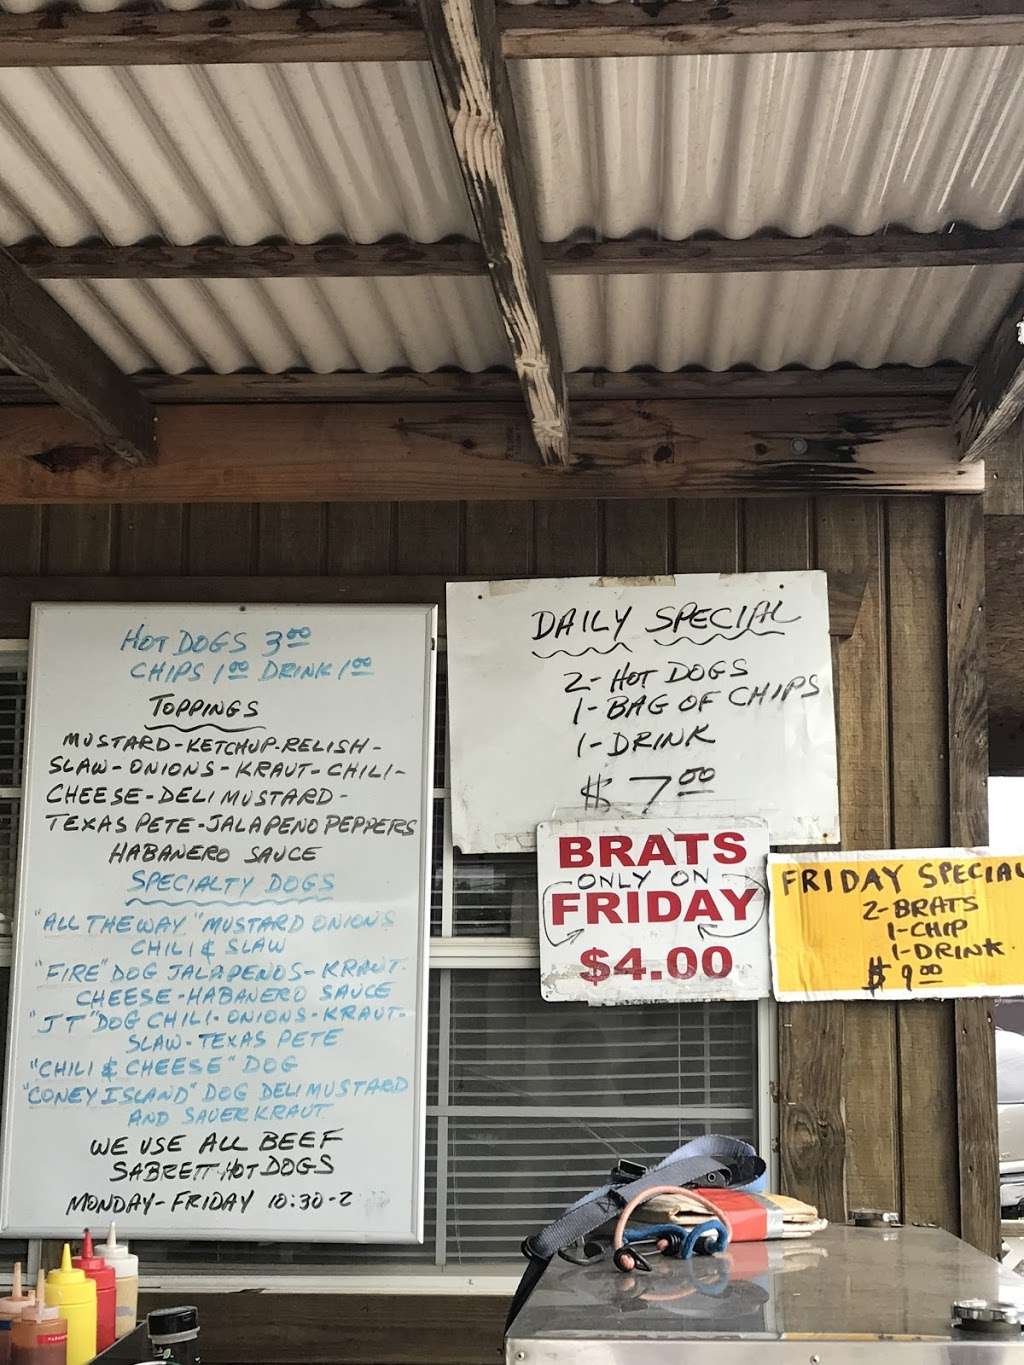 HOT DOGS 3.00
CHIPS 1.00 DRINK 1.00
TOPPINGS
MUSTARD-KETCHUP-RELISH-
SLAW-ONIONS-KRAUT-CHILI-
CHEESE-DELI MUSTARD-
TEXAS PETE-JALAPENO PEPPERS
HABANERO SAUCE
SPECIALTY DOGS
"ALL THE WAY" MUSTARD ONIONS
CHILI & SLAW
"FIRE" DOG JALAPENOS-KRAUT-
CHEESE-HABANERO SAUCE
"JT" DOG CHILI-ONIONS-KRAUT-
SLAW-TEXAS PETE
"CHILI & CHEESE" DOG
"CONEY ISLAND" DOG DELI MUSTARD
AND SAUERKRAUT
WE USE ALL BEEF
SABRETT HOT DOGS
MONDAY-FRIDAY 10:30-2
DAILY SPECIAL
2-HOT DOGS
1-BAG OF CHIPS
1-DRINK
$ 7.00
BRATS
ONLY ON
FRIDAY
$4.00
FRIDAY SPECIAL
2-BRATS
1-CHIP
1-DRINK
$ 9.00